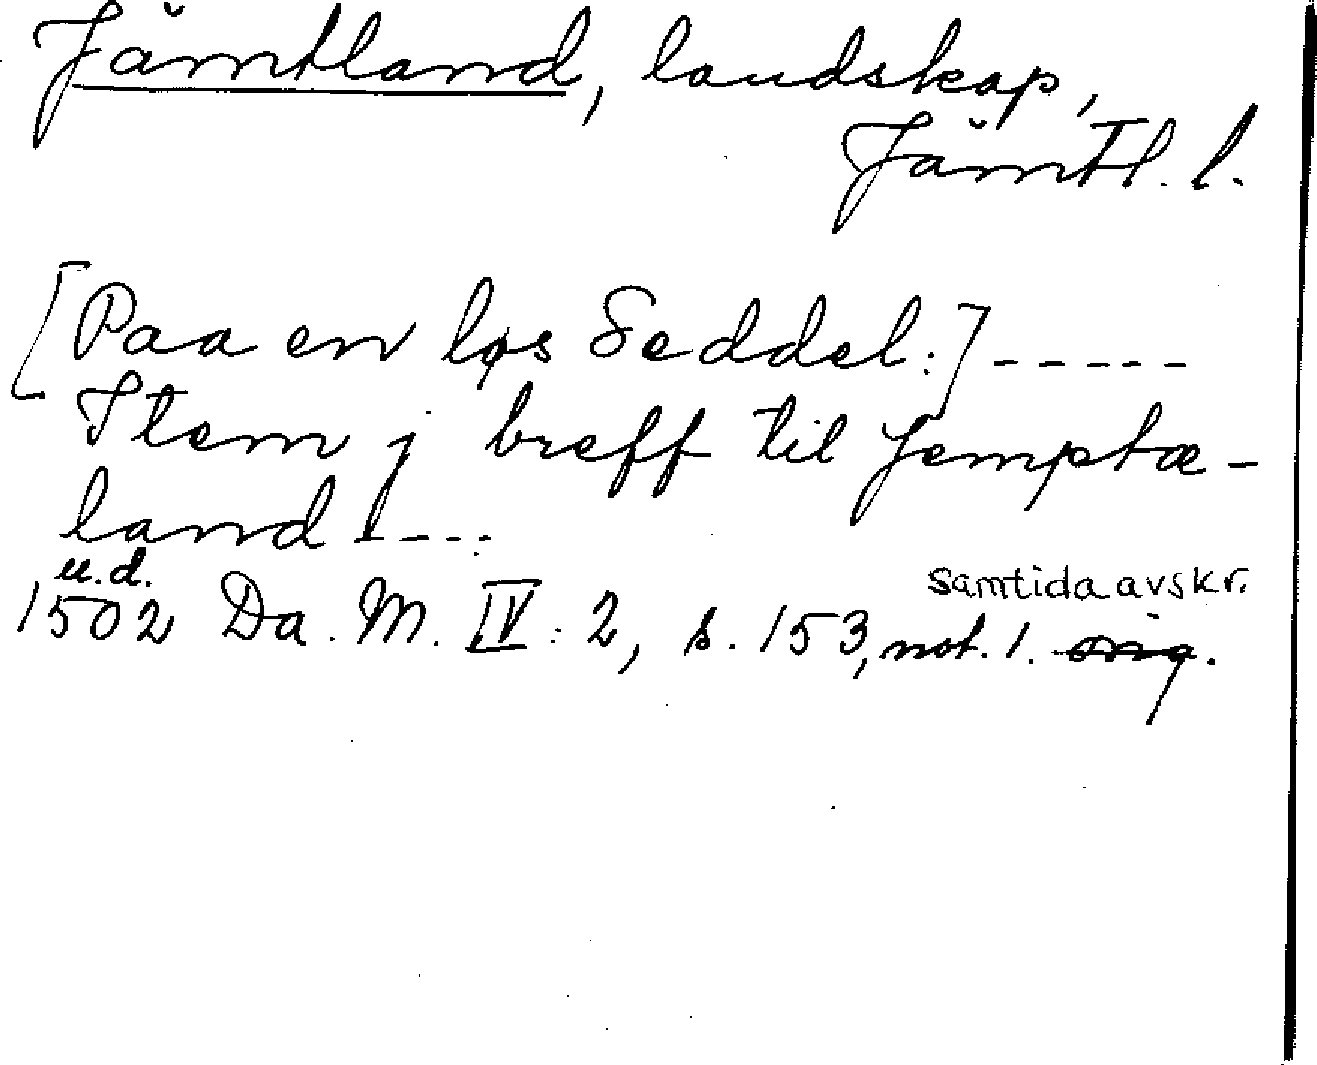 Jämtland, landskap,
Jämtl. l.
[Paa en løs Seddel:] - - - - -
Item j breff til Jemptæ-
land - - - -
u.d.
samtida avskr.
1502 Da. M. IV: 2, s. 153, not. 1. orig.